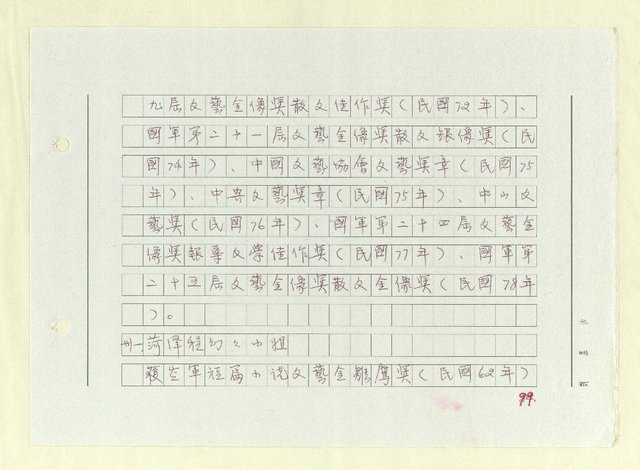 九屆文藝金像獎散文佳作獎(民國72年)、
國軍第二十一屆文藝金像獎散文銀像獎(民
國74年)、中國文藝協會文藝獎章(民國75
年)、中興文藝獎章(民國75年)、中山文
藝獎(民國76年)、國軍第二十四屆文藝金
像獎報導文學佳作獎(民國77年)、國軍第
二十五屆文藝金像獎散文金像獎(民國78年
)。
卅一、菏澤程幻々小姐
獲空軍短篇小說文藝金鵰鷹獎(民國62年)
99.